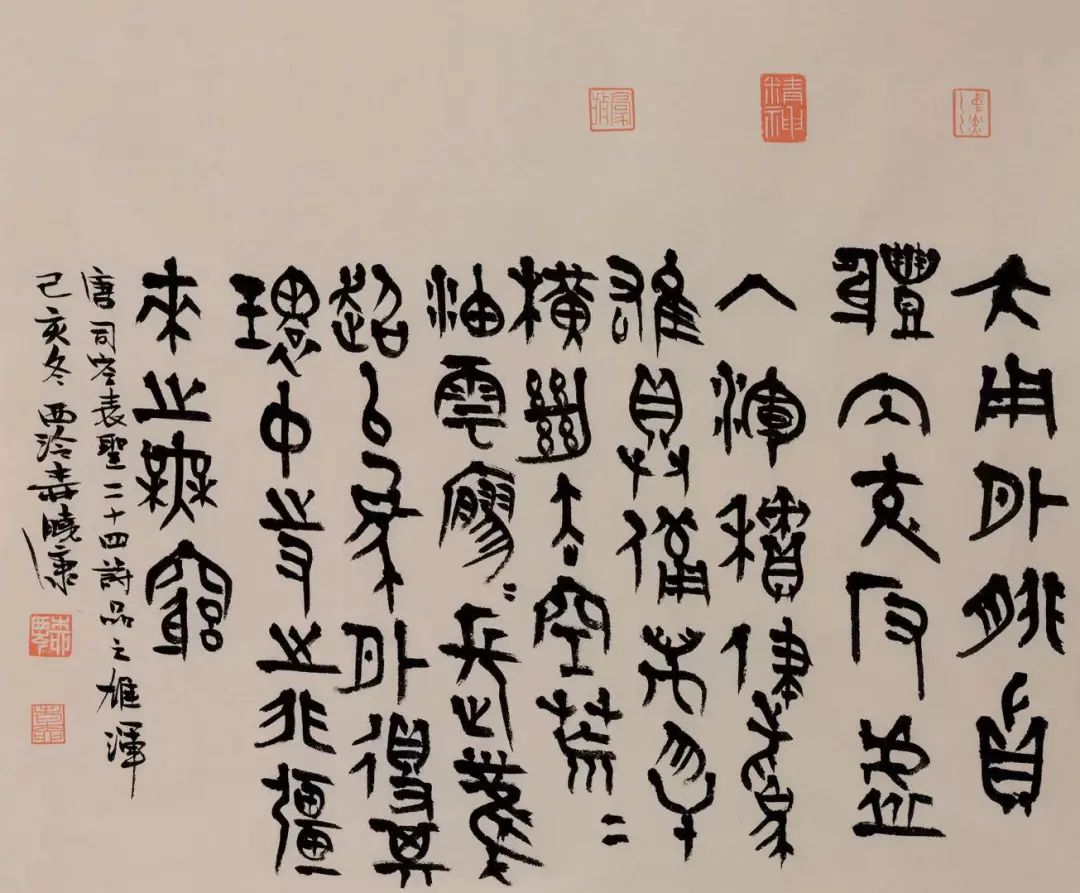 大用外腓真
體内充反虛
入渾積健為
雄具備萬物
橫絶太空荒〻
油雲寥〻長風
超以象外得其
環中持之非彊
來之無窮
唐司空表聖二十四詩品之雄渾
己亥冬 西泠曉康
精神